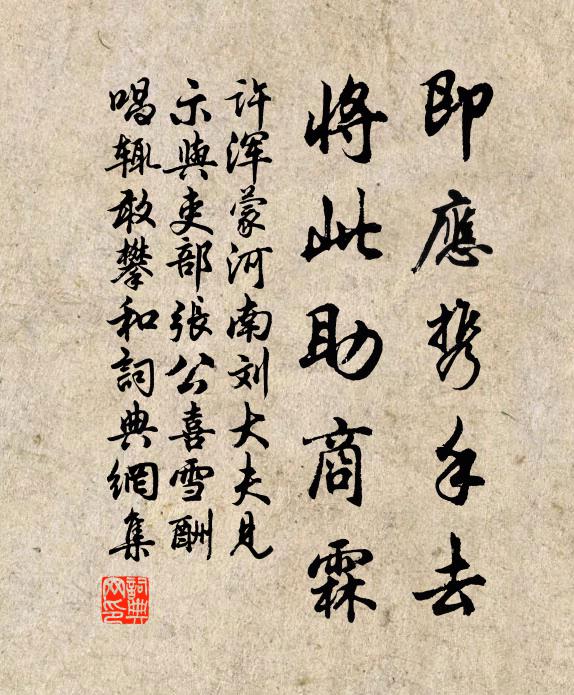 即應携手去
將此助商霖
许渾蒙河南刘大夫見
示與吏部張公喜雪酬
唱輒敢攀和詞典網集
詞典